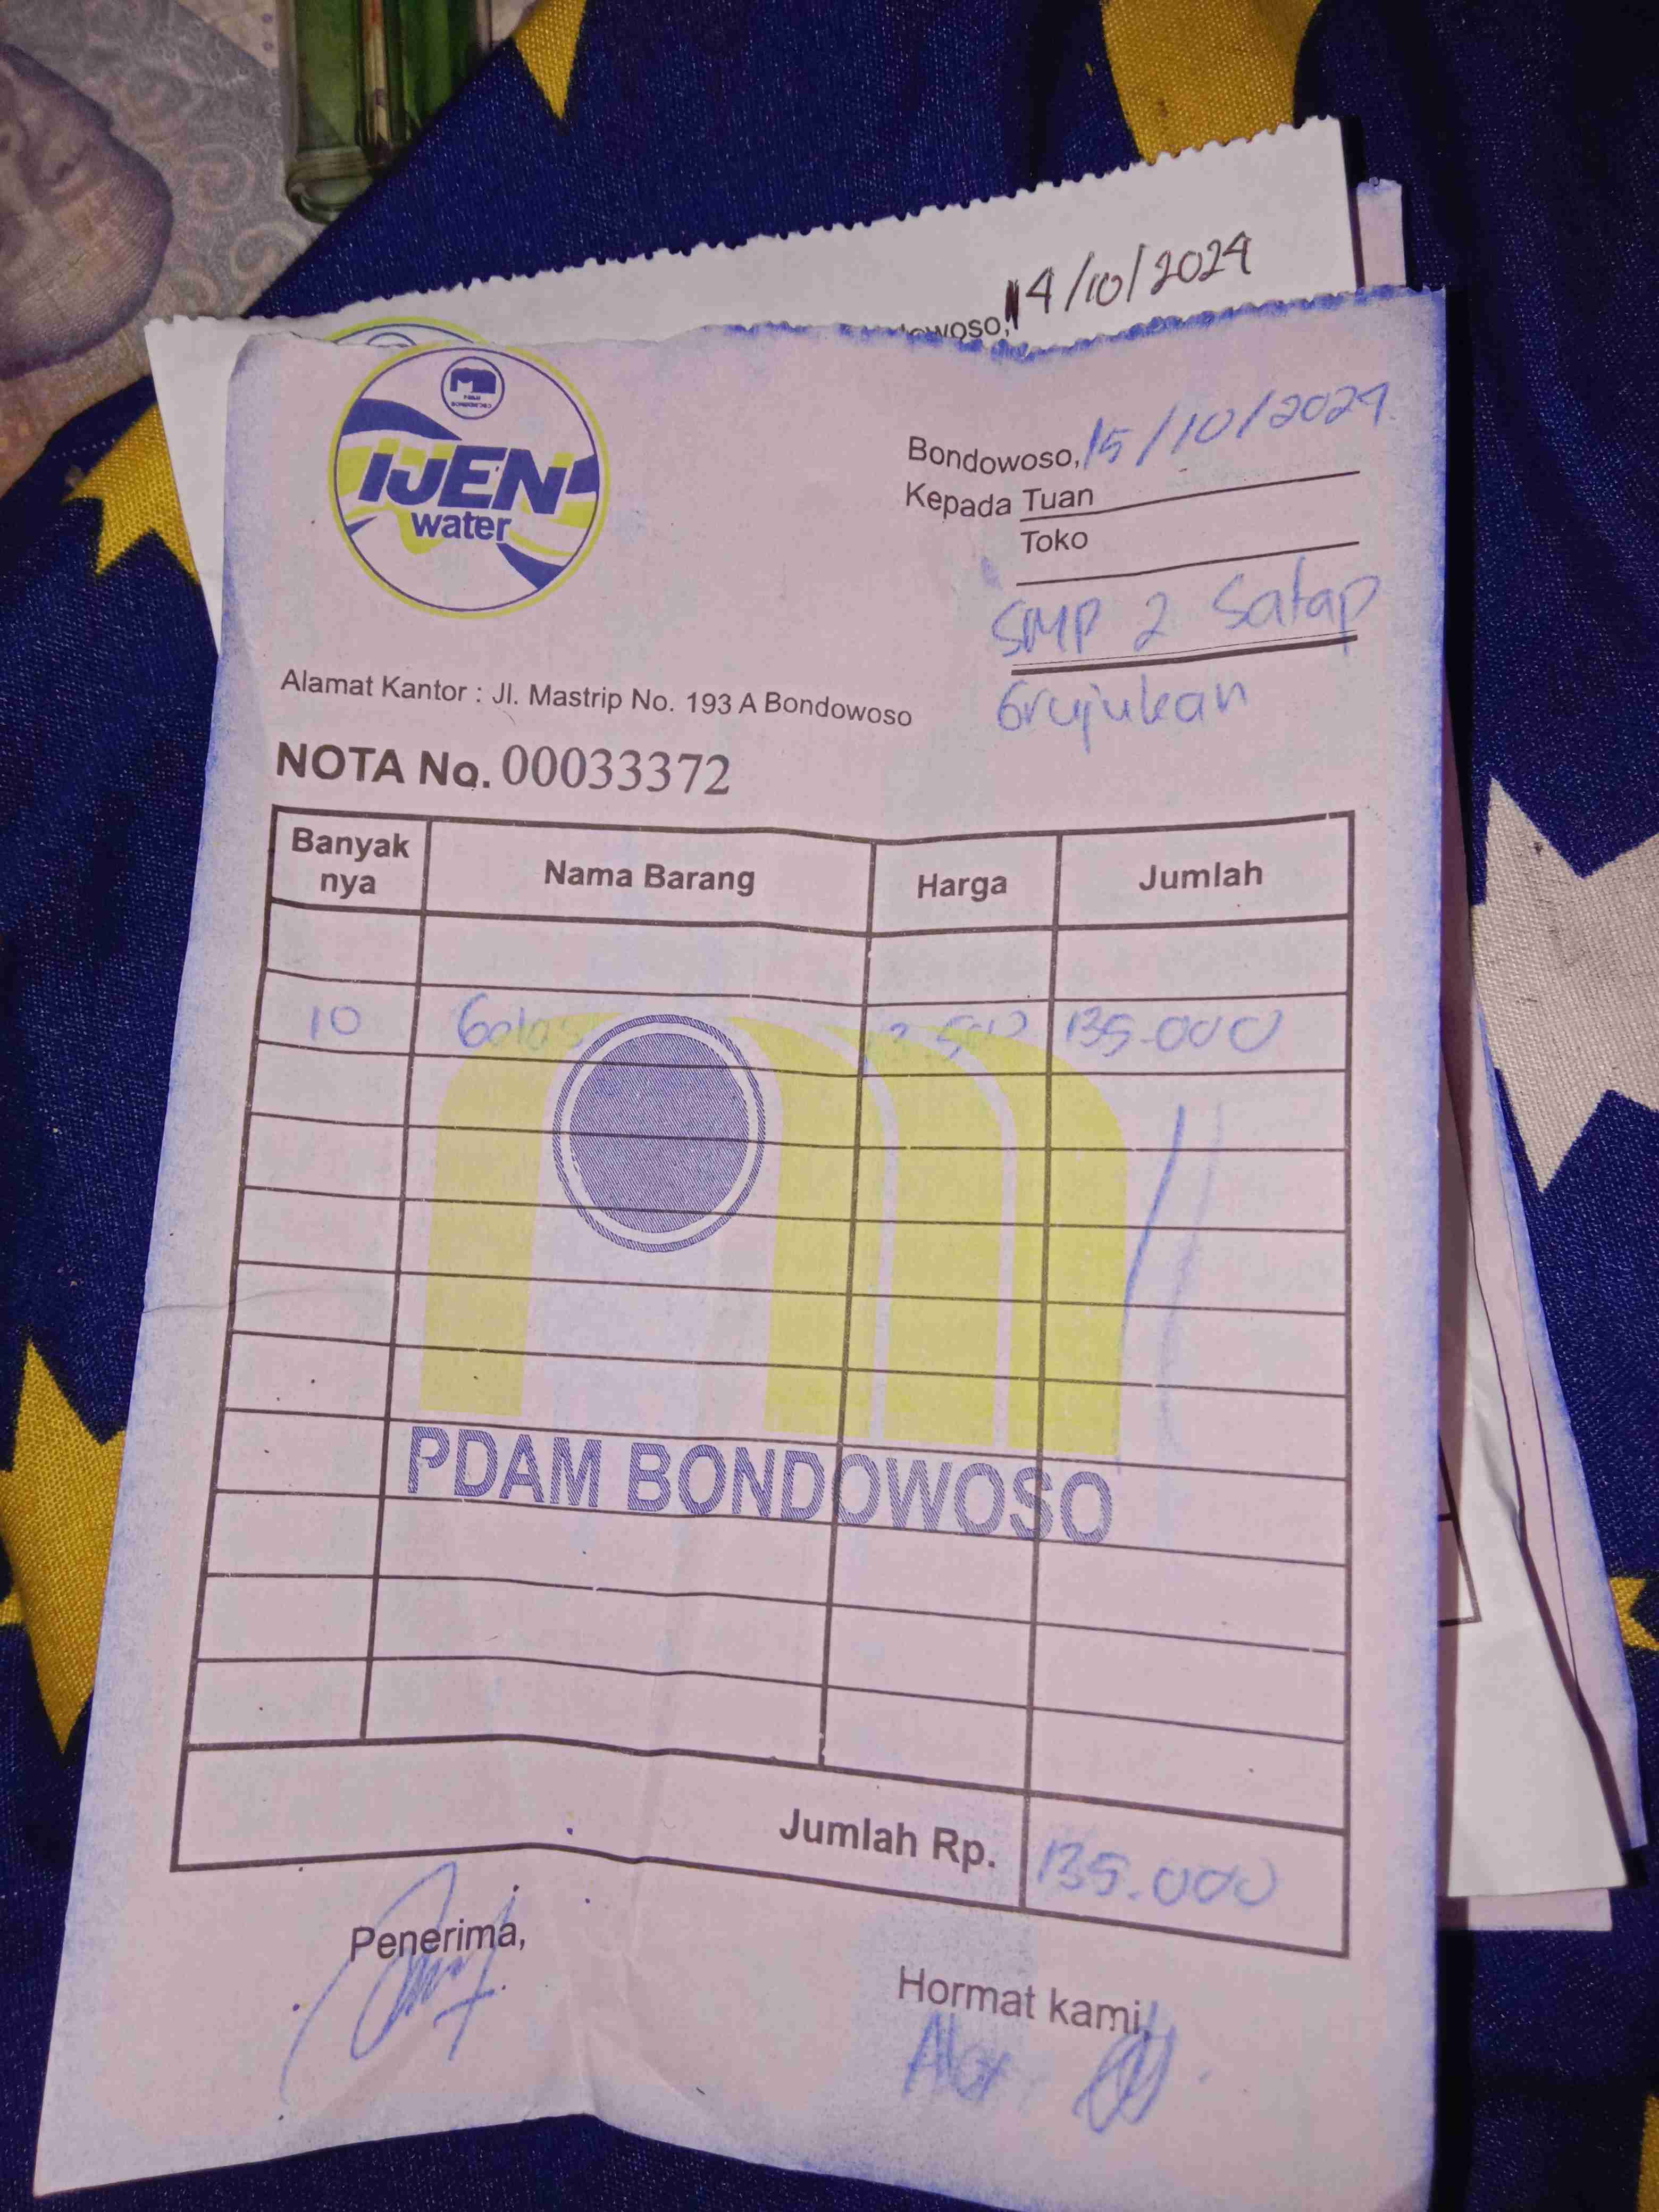 14/10/2024
IJEN
water
Bondowoso, 15/10/2024
Kepada Tuan
Toko
SMP 2 Satap
Grujukan
Alamat Kantor : Jl. Mastrip No. 193 A Bondowoso
NOTA No. 00033372
Banyak nya Nama Barang Harga Jumlah
10 Gelas 13.500 135.000
PDAM BONDOWOSO
Jumlah Rp. 135.000
Penerima,
Hormat kami,